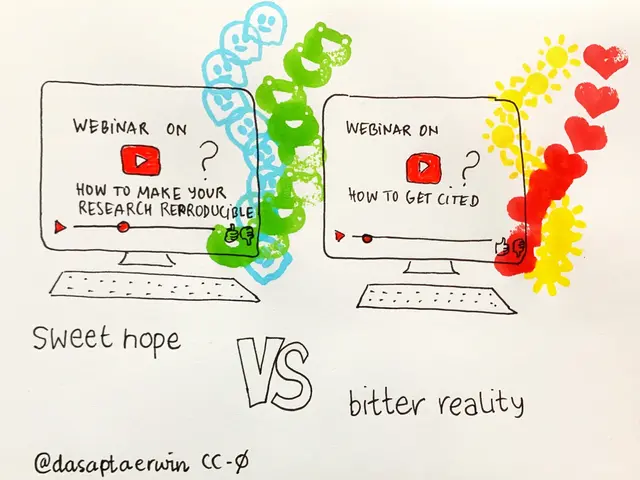 WEBINAR ON
?
HOW TO MAKE YOUR
RESEARCH REPRODUCIBLE
WEBINAR ON
?
HOW TO GET CITED
sweet hope
VS
bitter reality
@dasaptaerwin CC-Ø